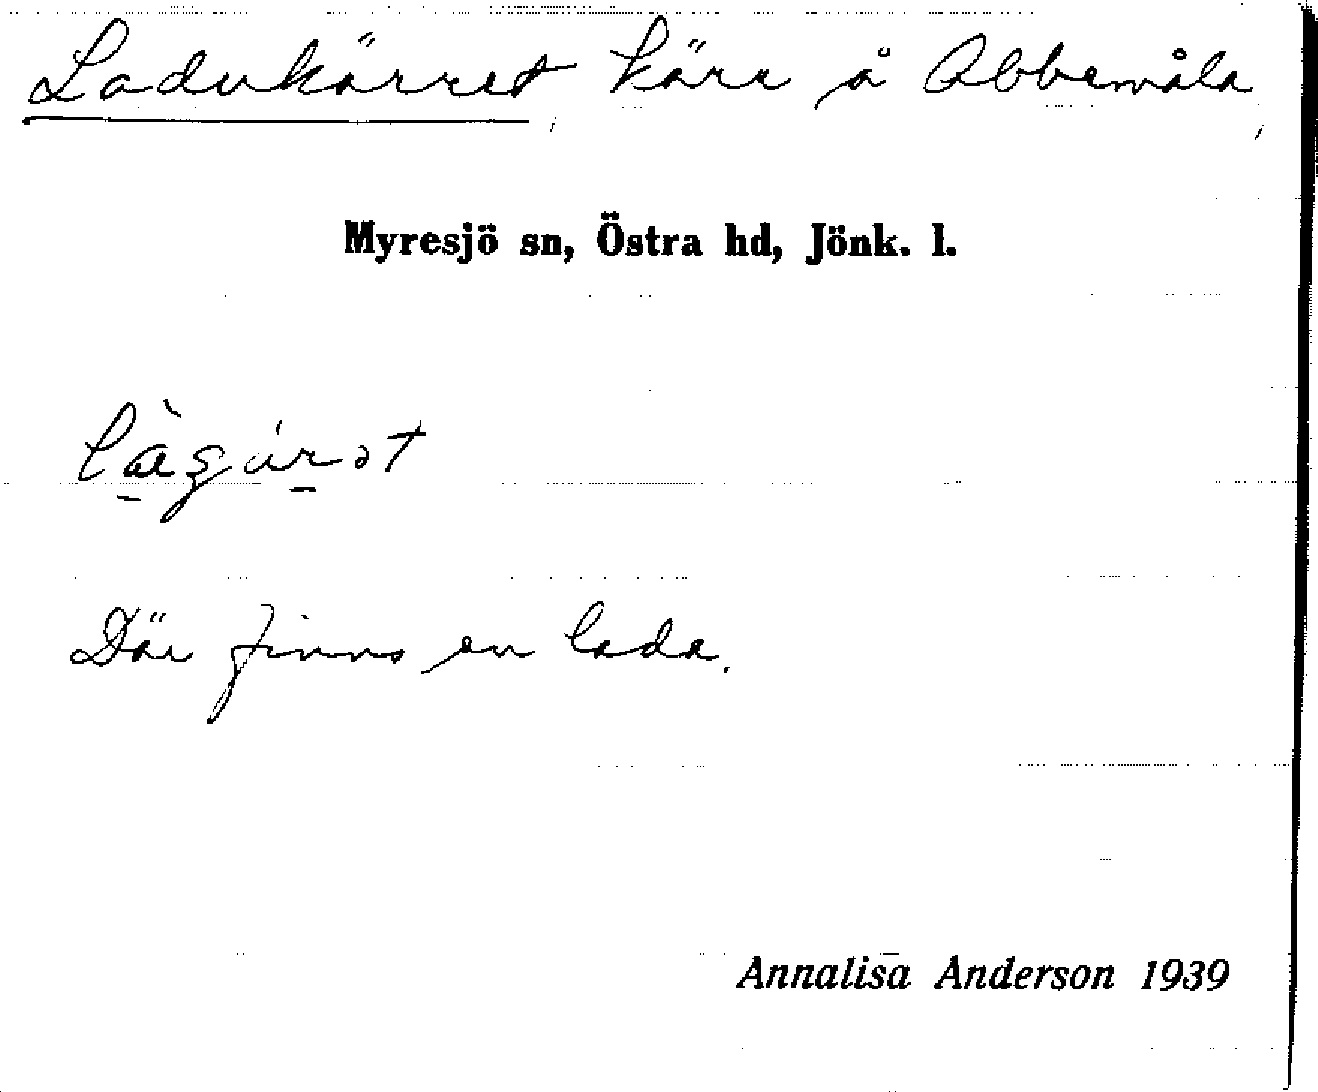 Ladukärret, kärr å Abbemåla,
Myresjö sn, Östra hd, Jönk. l.
Där finns en lada.
Annalisa Anderson 1939